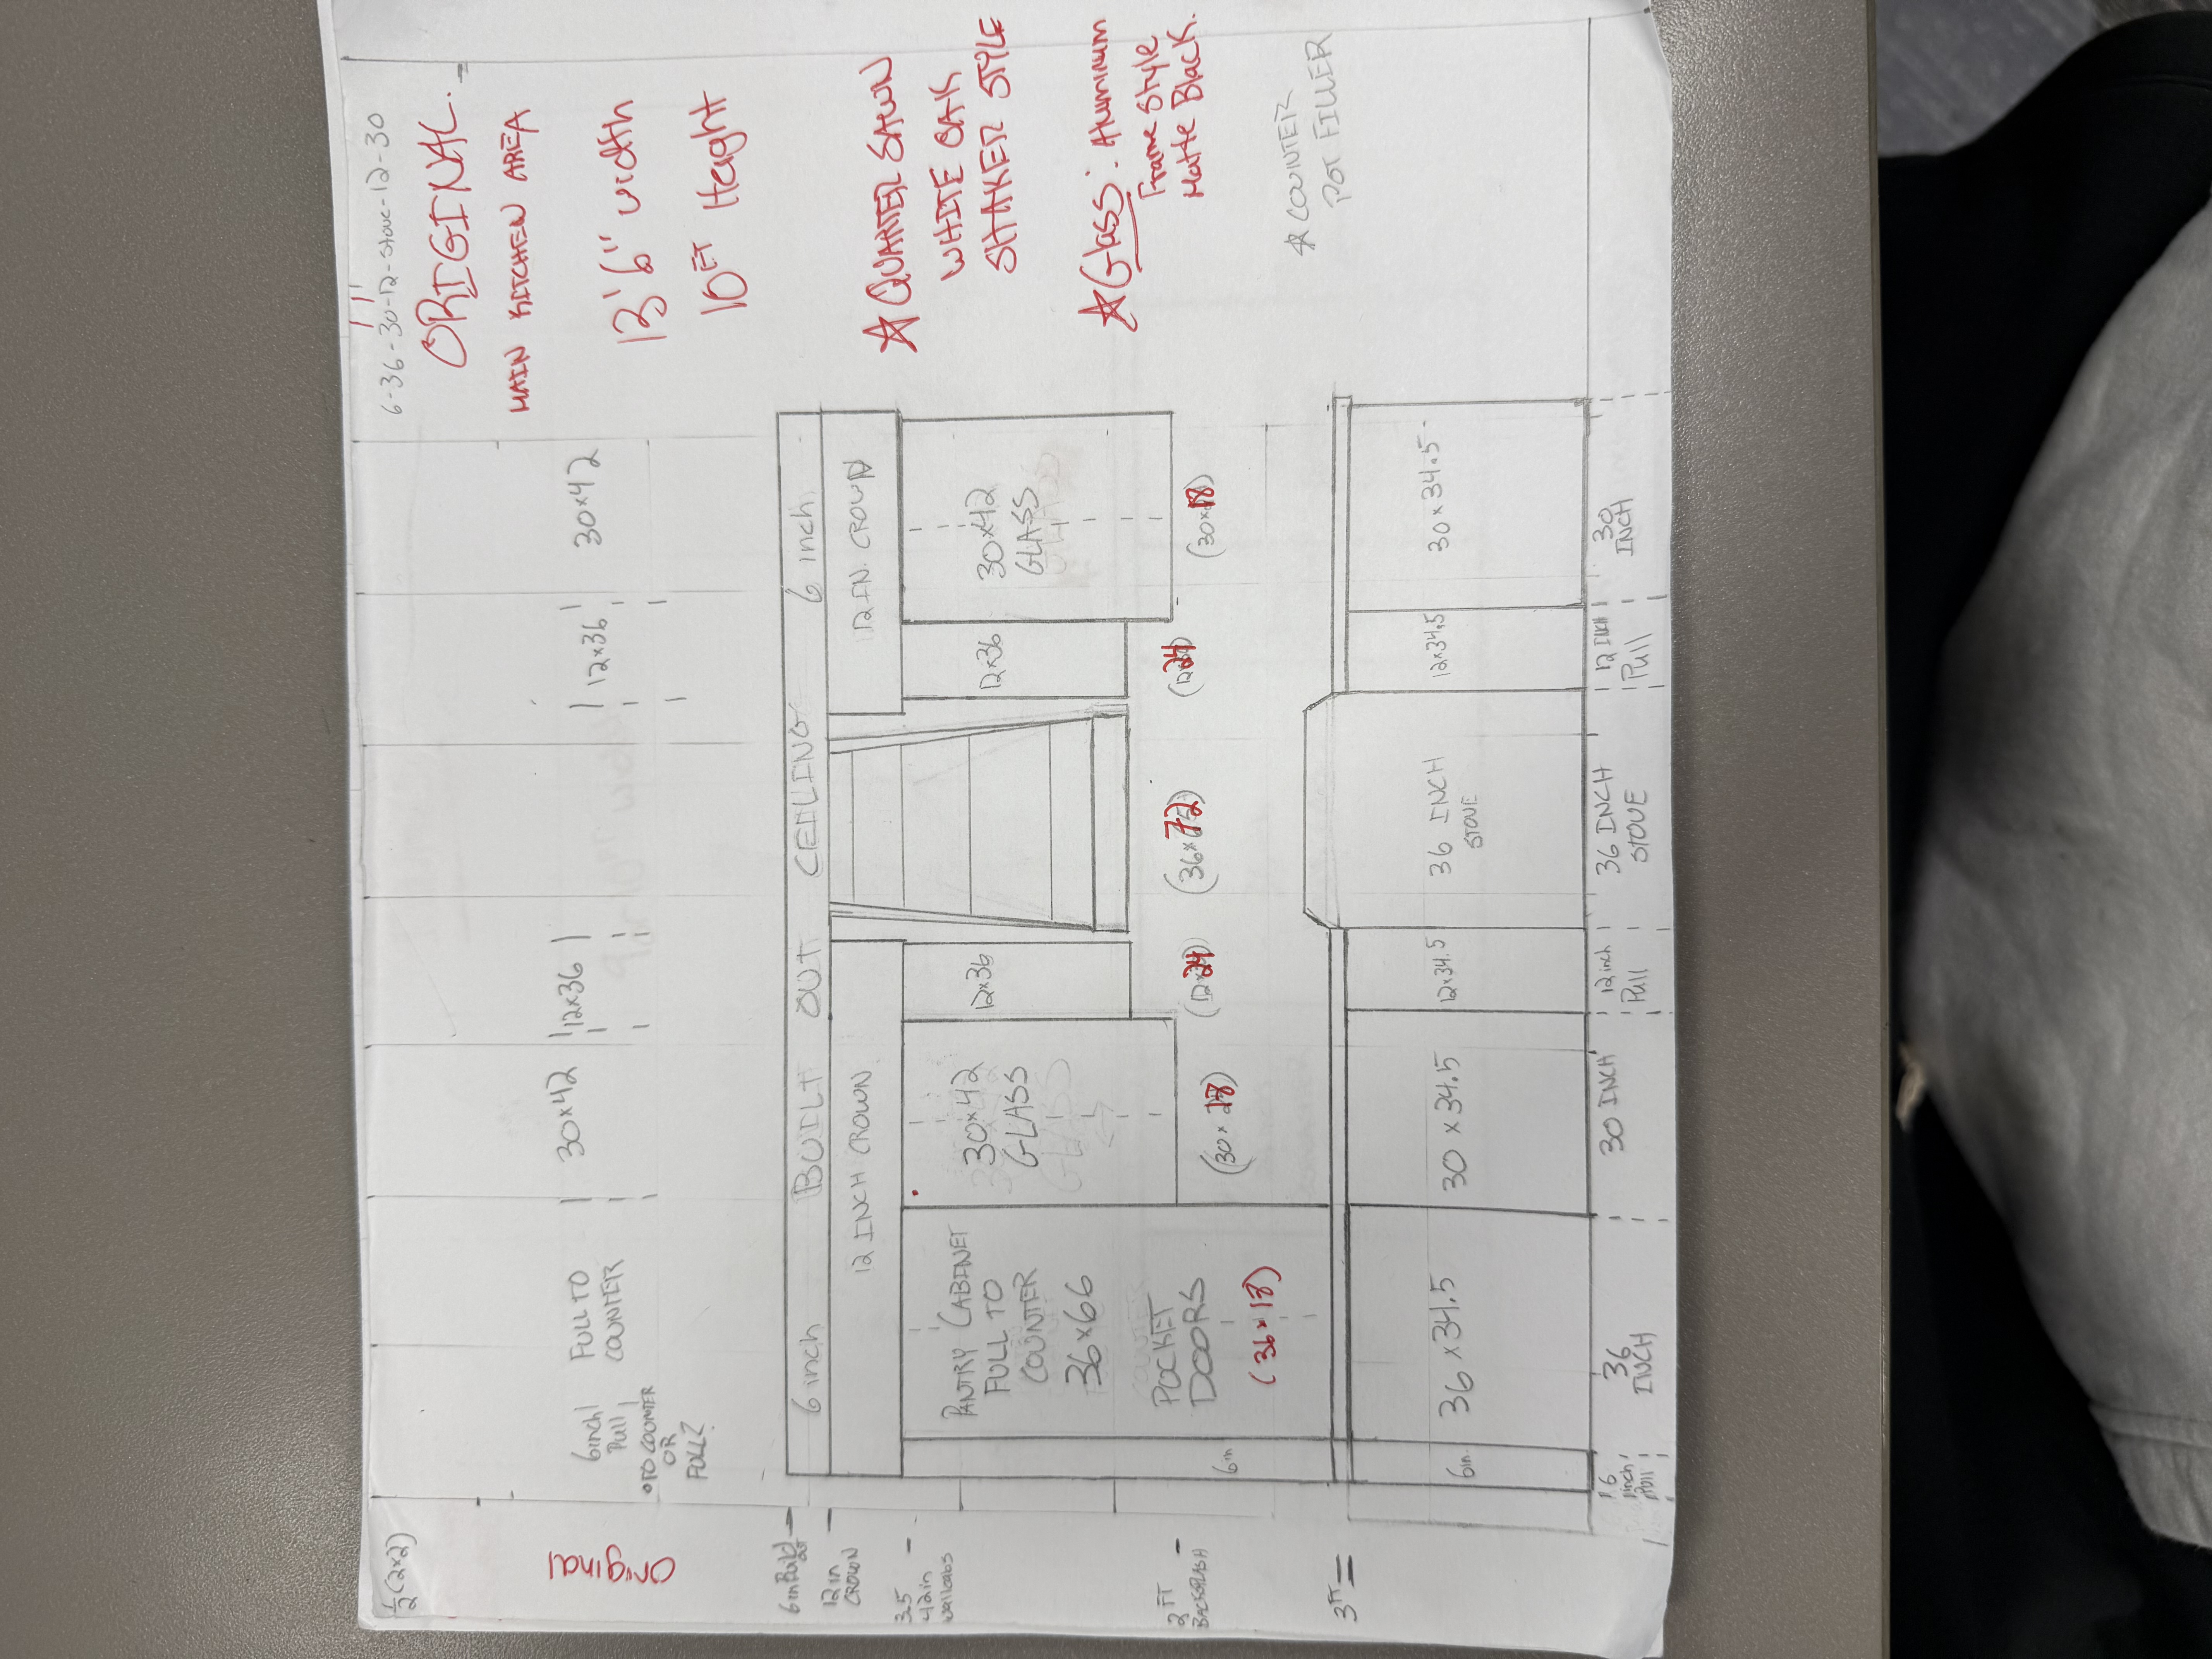 ½(2x2)
6-36-30-12-stove-12-30
ORIGINAL.
MAIN KITCHEN AREA
13'6" width
10FT Height
☆ QUARTER SAWN
WHITE OAK
SHAKER STYLE
☆ Glass: Aluminum
Frame Style
Matte Black.
☆ COUNTER
POT FILLER
Original
6inch
Pull
• TO COUNTER
OR
FULL?
FULL TO
COUNTER
30x42
12x36
12x36
30x42
6in Build
12in
CROWN
3.5
42in
wallcabs
2FT
BACKSPLASH
3FT
6 inch BUILT OUT CEILING 6 inch
12 INCH CROWN
12 IN. CROWN
PANTRY CABINET
FULL TO
COUNTER
36x66
POCKET
DOORS
(36x18)
6in
30x42
GLASS
(30x18)
12x36
(12x24)
(36x72)
12x36
(12x24)
30x42
GLASS
(30x18)
6in.
36x34.5
30x34.5
12x34.5
36 INCH
STOVE
12x34.5
30x34.5
6
inch
Pull
36
INCH
30 INCH
12 inch
Pull
36 INCH
STOVE
12 INCH
Pull
30
INCH